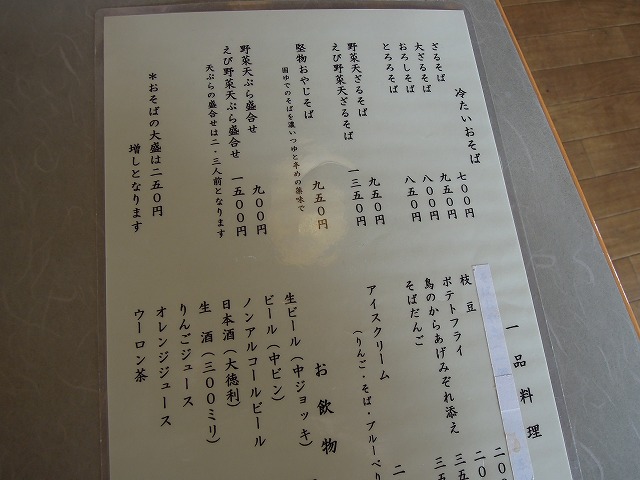 冷たいおそば
ざるそば 七〇〇円
大ざるそば 九五〇円
おろしそば 八〇〇円
とろろそば 八五〇円
野菜天ざるそば 九五〇円
えび野菜天ざるそば 一三五〇円
堅物おやじそば 九五〇円
固ゆでのそばを濃いつゆと辛めの薬味で
野菜天ぷら盛合せ 九〇〇円
えび野菜天ぷら盛合せ 一五〇〇円
天ぷらの盛合せは二・三人前となります
*おそばの大盛は二五〇円
増しとなります
一品料理
枝豆
ポテトフライ
鳥のからあげみぞれ添え
そばだんご
アイスクリーム
(りんご・そば・ブルーベリ
お飲物
生ビール(中ジョッキ)
ビール(中ビン)
ノンアルコールビール
日本酒(大徳利)
生酒(三〇〇ミリ)
りんごジュース
オレンジジュース
ウーロン茶